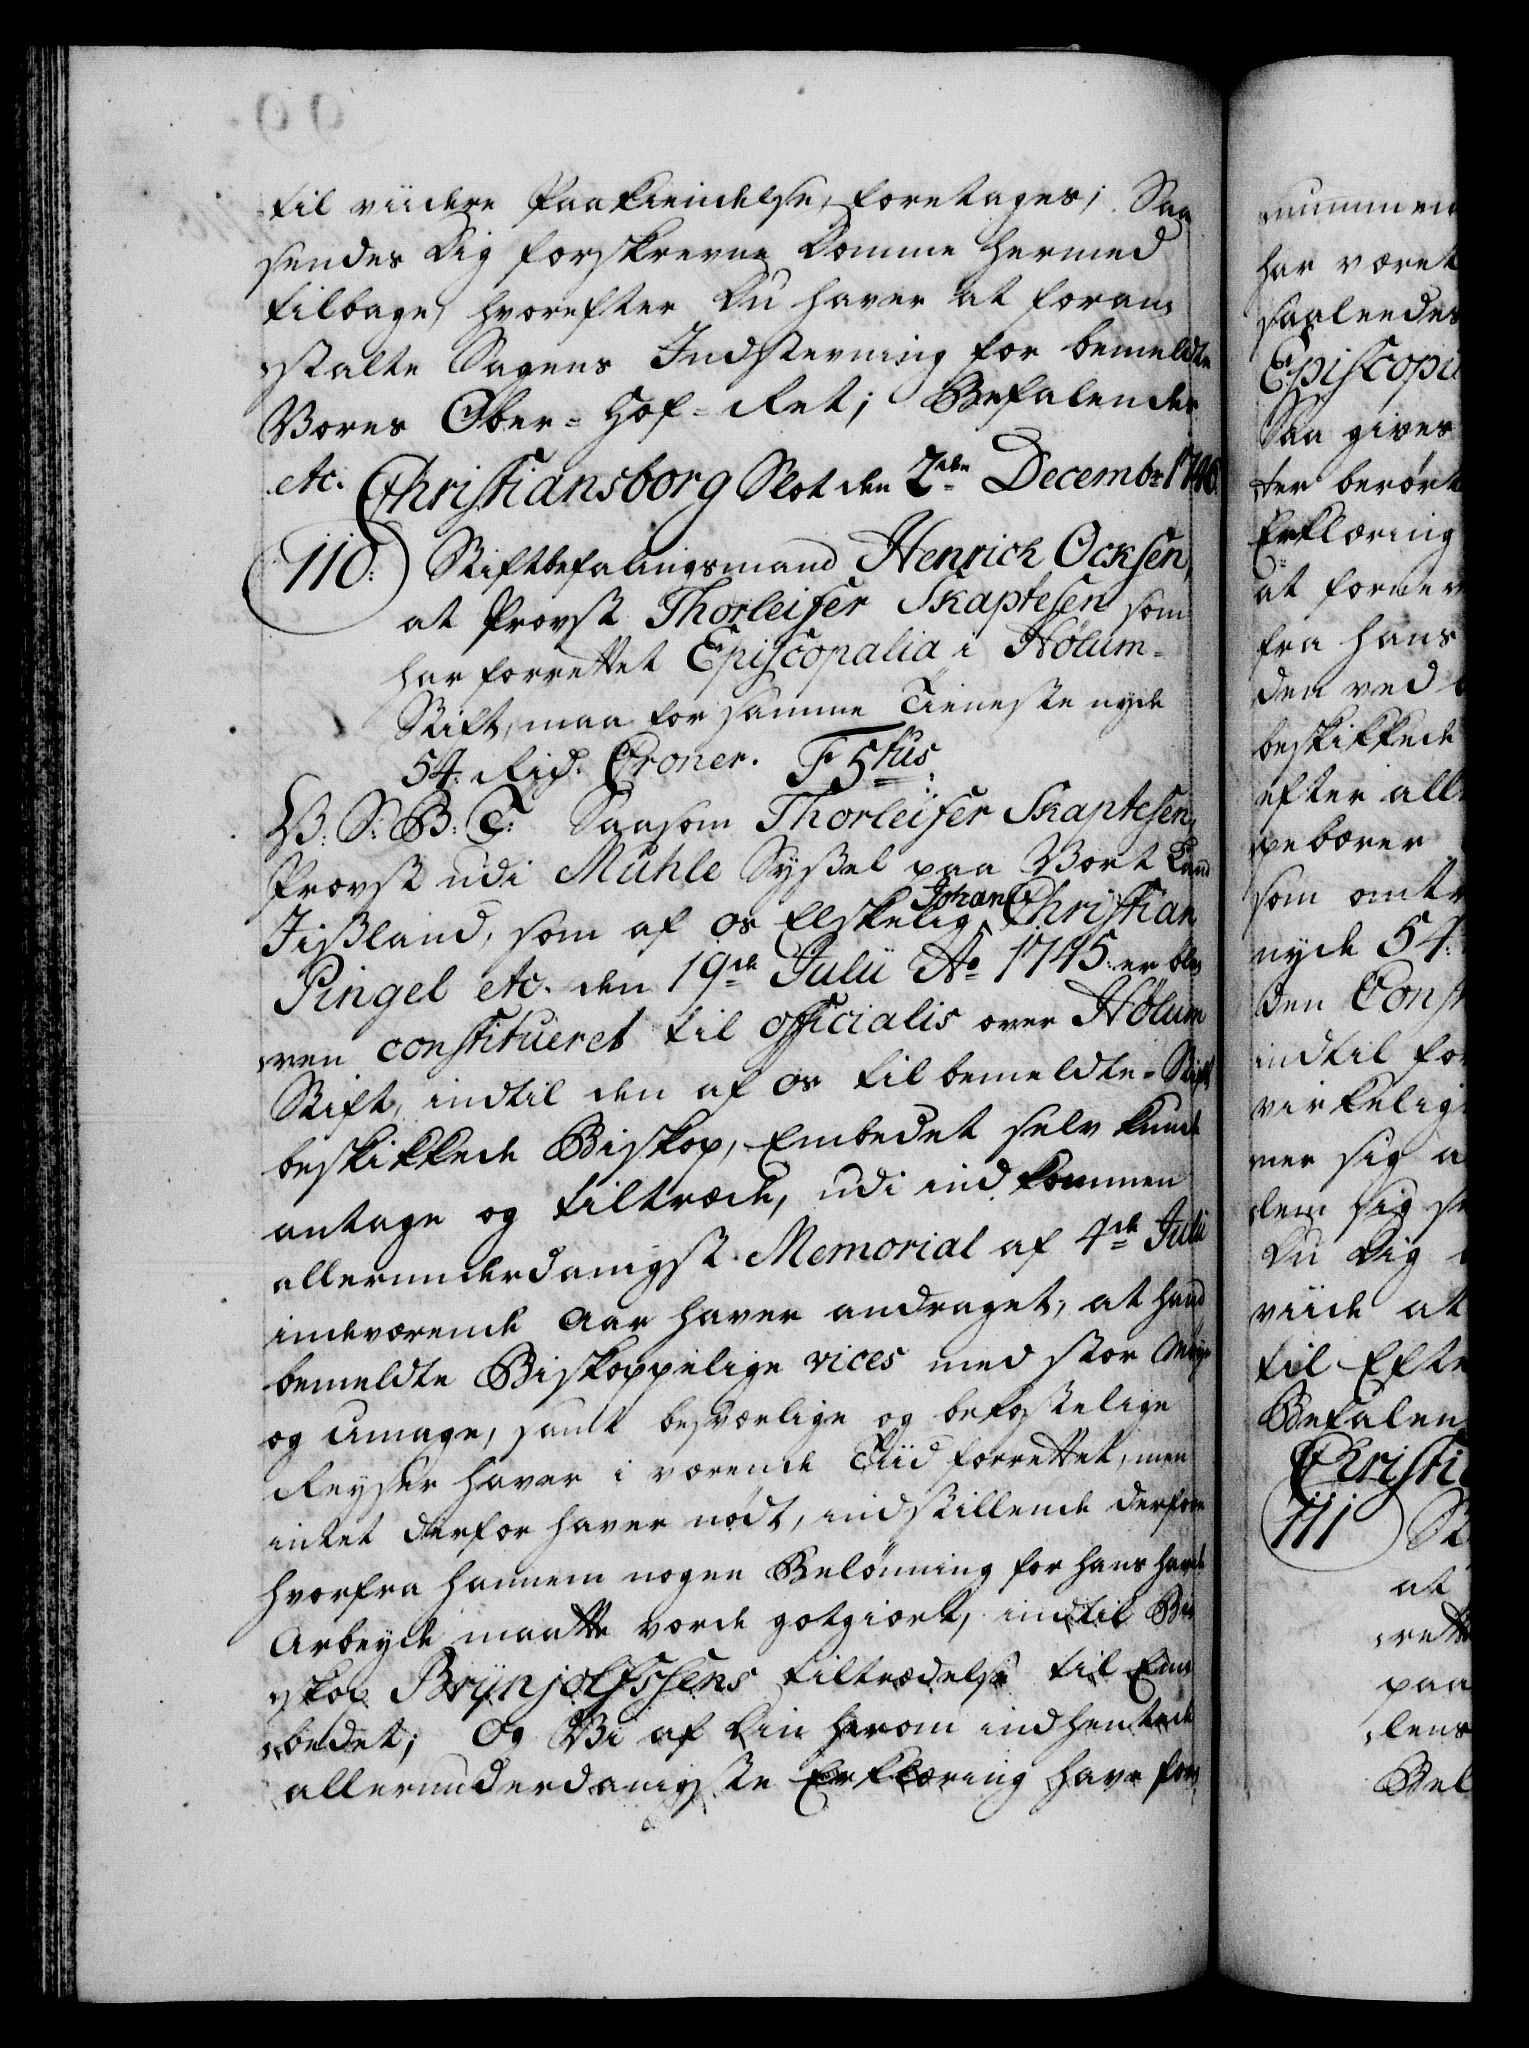 til viidere Paakiendelse, foretages; Saa
sendes Dig forskrevne Domme hermed
tilbage, hvorefter Du haver at foran-
stalte Sagens Indstevning for bemeldte
Vores Ober-Hof-Ret; Befalendes
etc. Christiansborg Slot den 2den Decembr 1746.
110. Stiftbefalingsmand Henrich Ocksen,
at Provst Thorleifer Skaptesen som
har forrettet Episcopalia i Hólum-
Stift, maa for samme Tieneste nyde
54. Rixd. Croner. F 5tus
W. S. B. T. Saasom Thorleifer Skaptesen,
Provst udi Muhle Syssel paa Vort Land
Jisland, som af os Elskelig Johan Christian
Pingel etc. den 19de Julii Ao 1745. er ble-
ven constitueret til officialis over Hólum
Stift, indtil den af os til bemeldte Stift
beskikkede Biskop, Embedet selv kunde
antage og tiltræde, udi indkommen
allerunderdanigst Memorial af 4de Julii
indeværende Aar haver andraget, at hand
bemeldte Biskoppelige vices med stor Møye
og Umage, samt besværlige og bekostelige
Reyser haver i værende Tiid forrettet, men
intet derfor haver nødt, indstillende derfore
hvorfra hannem nogen Belønning for hans hafde
Arbeyde maatte vorde gotgiort, indtil Bi-
skop Brÿnjolfssens tiltrædelse til Em-
bedet; Og Vi af Din herom indhentede
allerunderdanigste Erklæring have for-
nummen
har været
saaledes
Episcopa
Saa gives
ter berørt
Erklæring
at forme
fra hans
den ved
beskikkede
efter all
pebærer
som omt
nyde 54.
den Const
indtil for
virkelig
mer sig a
dem sig
Du Dig
viide at
til Efte
Befalen
Christi
111 St
at
rette
paa
lens
Bel